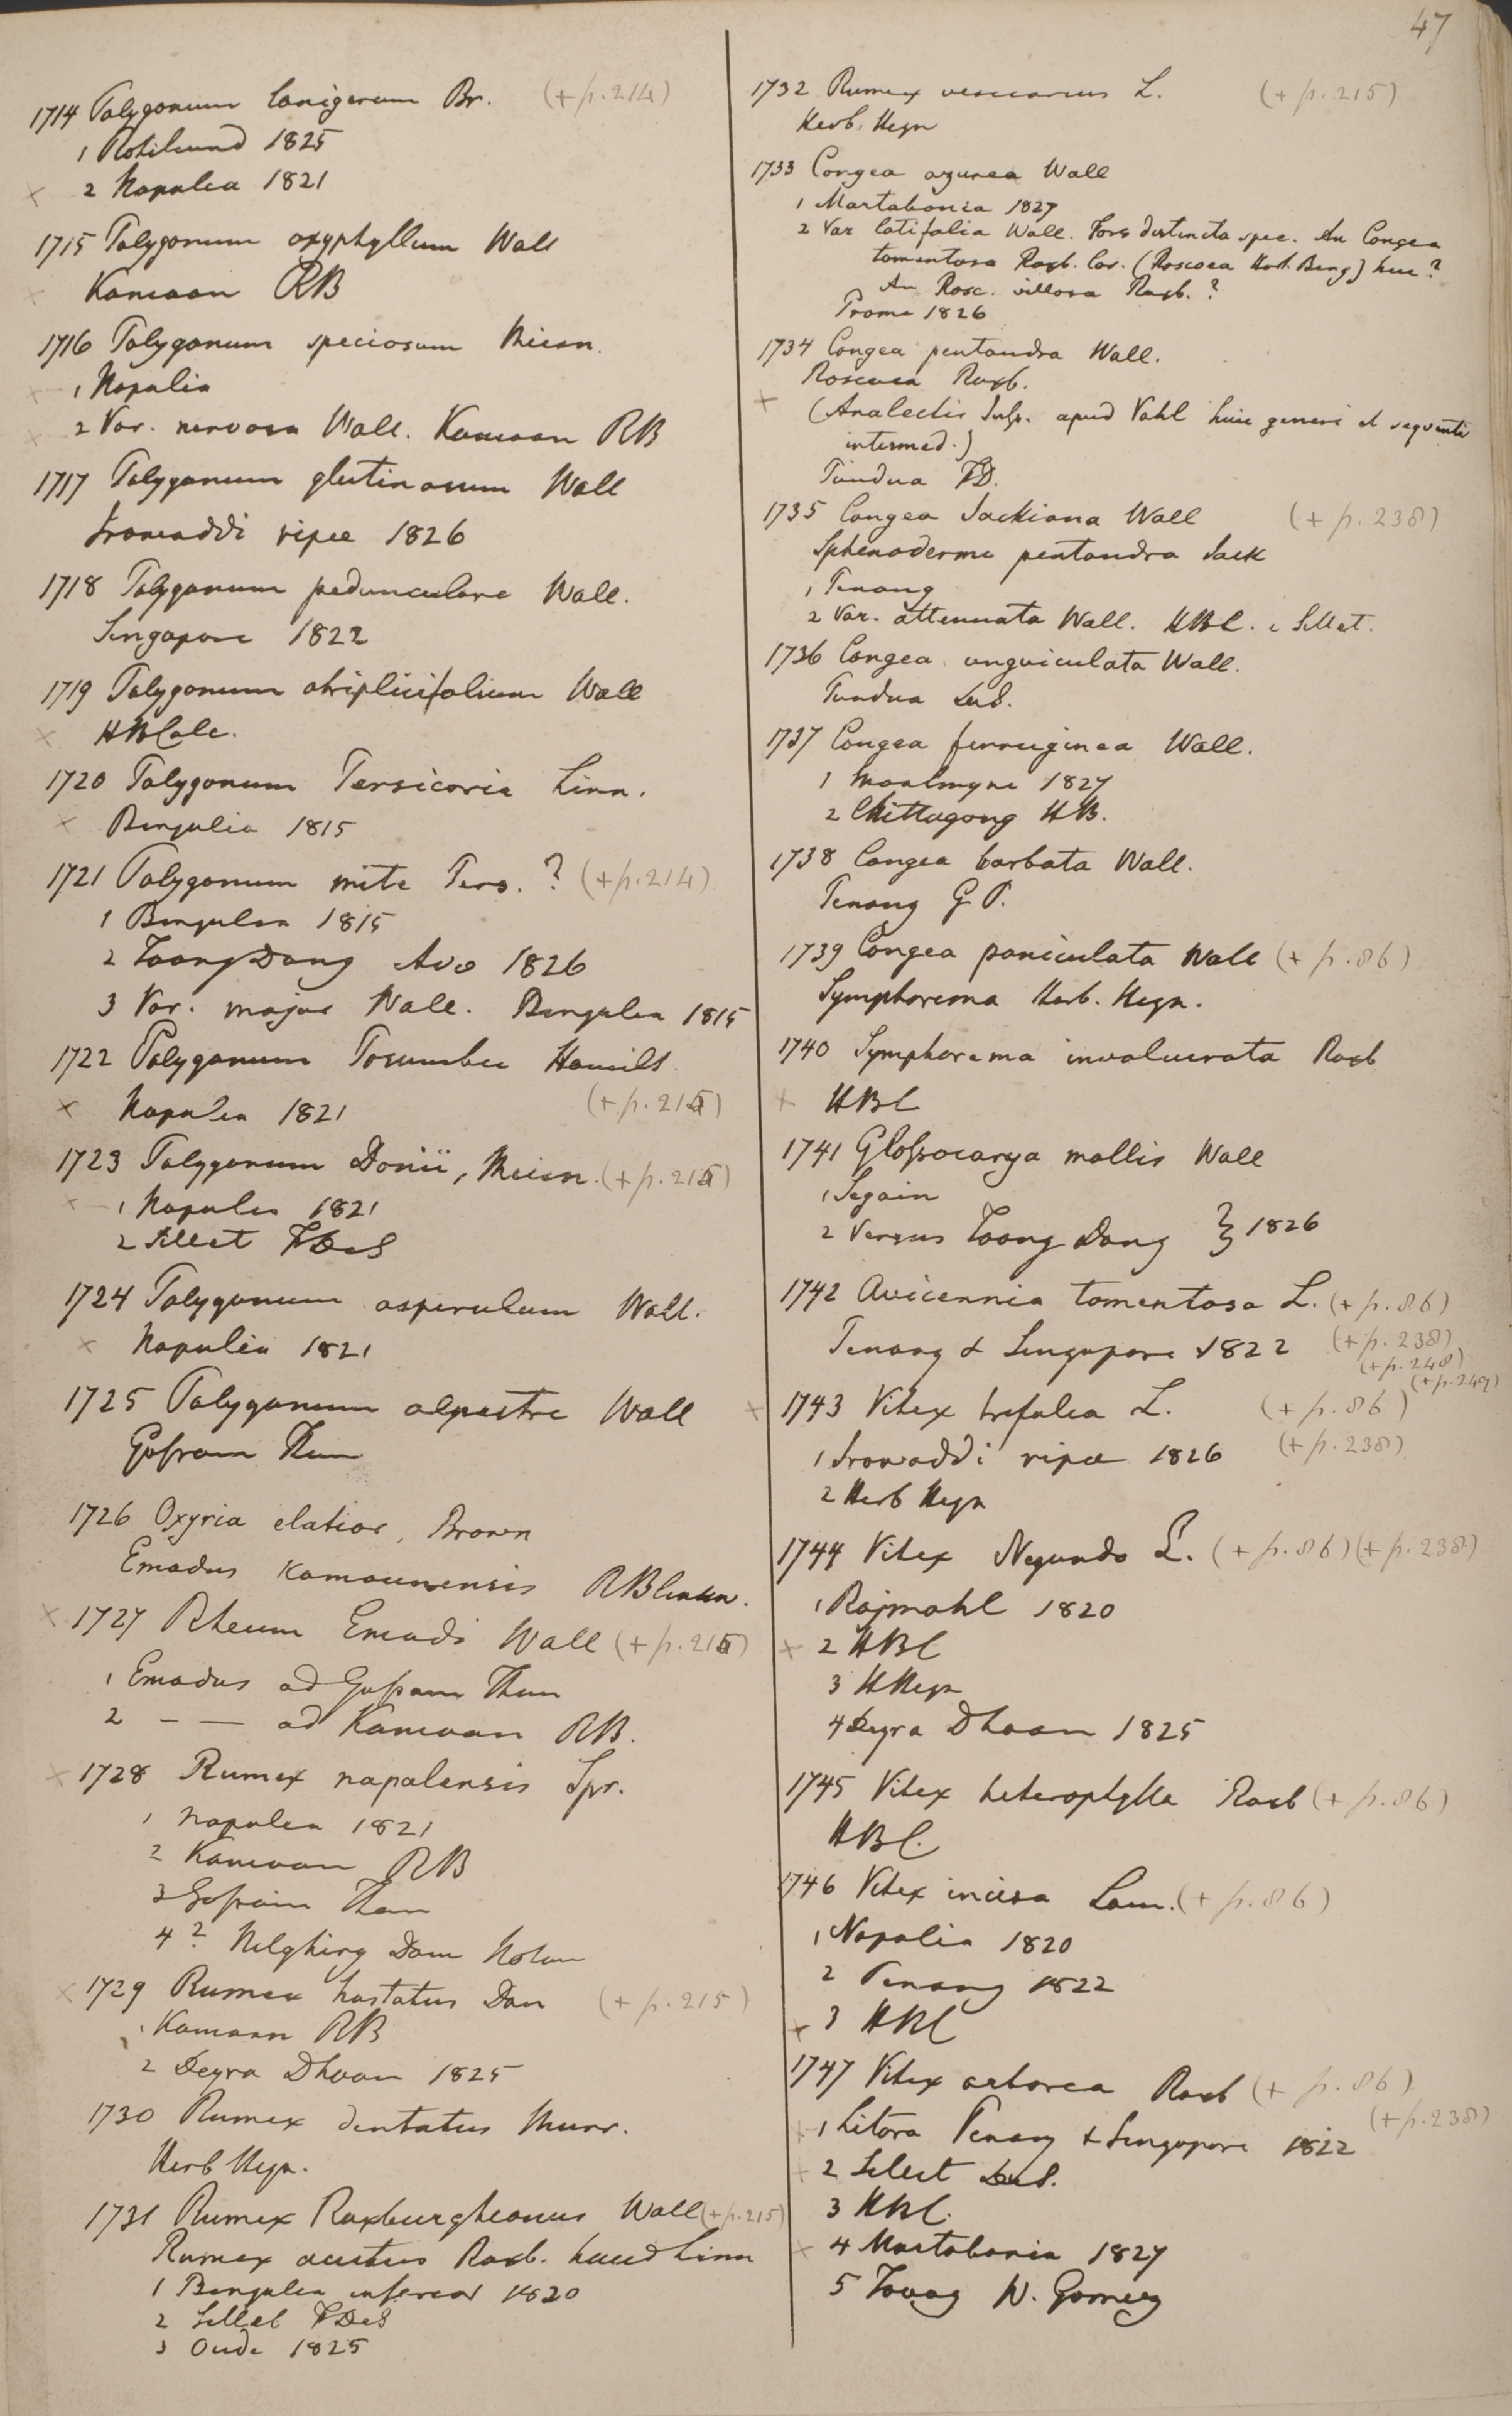 47
1714 Polygonum lanigerum Br. (+ p. 214)
1 Rohilcund 1825
x 2 Napalia 1821
1715 Polygonum oxyphyllum Wall
x Kamaon RB
1716 Polygonum speciosum Meisn.
x 1 Napalia
x 2 Var. nervosa Wall. Kamaon RB
1717 Polygonum glutinosum Wall
Irawaddi ripae 1826
1718 Polygonum pedunculare Wall.
Singapore 1822
1719 Polygonum atriplicifolium Wall
x HBCalc.
1720 Polygonum Persicaria Linn.
x Bengalia 1815
1721 Polygonum mite Pers. ? (+ p. 214)
1 Bengalia 1815
2 Toong Dong Ava 1826
3 Var. major Wall. Bengalia 1815
1722 Polygonum Posumbu Hamilt.
x Napalia 1821 (+ p. 215)
1723 Polygonum Donii, Meisn. (+ p. 215)
x 1 Napalia 1821
2 Sillet FDeS
1724 Polygonum asperulum Wall.
x Napalia 1821
1725 Polygonum alpestre Wall
Gossain Than
1726 Oxyria elatior, Brown
Emodus Kamaunensis RBlinkw.
x 1727 Rheum Emodi Wall (+ p. 215)
1 Emodus ad Gossain Than
2 — — ad Kamaon RB.
x 1728 Rumex napalensis Spr.
1 Napalia 1821
2 Kamaon RB
3 Gossain Than
4 ? Nelghiry Dom Noton
x 1729 Rumex hastatus Don (+ p. 215)
1 Kamaon RB
2 Deyra Dhoon 1825
1730 Rumex dentatus Murr.
Herb Heyn.
1731 Rumex Roxburghianus Wall (+ p. 215)
Rumex acutus Roxb. haud Linn
1 Bengalia inferior 1820
2 Sillet FDeS
3 Oude 1825
1732 Rumex vesicarius L. (+ p. 215)
Herb. Heyn
1733 Congea azurea Wall
1 Martabania 1827
2 Var latifolia Wall. Fors distincta spec. An Congea
tomentosa Roxb. Cor. (Roscoea Hort. Beng) huc ?
An Rosc. villosa Roxb. ?
Prome 1826
1734 Congea pentandra Wall.
Roscoea Roxb.
x (Analectis Juss. apud Vahl huic generi et sequenti
intermed.)
Pundua FD.
1735 Congea Jackiana Wall (+ p. 238)
Sphenoderme pentandra Jack
1 Penang
2 Var. attenuata Wall. HBC. e Sillet.
1736 Congea unguiculata Wall.
Pundua DeS.
1737 Congea ferruginea Wall.
1 Moalmyne 1827
2 Chittagong HB.
1738 Congea barbata Wall.
Penang G P.
1739 Congea paniculata Wall (+ p. 86)
Symphorema Herb. Heyn.
1740 Symphorema involucrata Roxb
x HBC
1741 Glossocarya mollis Wall
1 Segain
2 Versus Toong Dong } 1826
1742 Avicennia tomentosa L. (+ p. 86)
Penang & Singapore 1822 (+ p. 238)
(+ p. 248)
(+ p. 249)
x 1743 Vitex trifolia L. (+ p. 86)
1 Irawaddi ripae 1826 (+ p. 238)
2 Herb Heyn
1744 Vitex Negundo L. (+ p. 86) (+ p. 238)
1 Rajmahl 1820
x 2 HBC
3 HHeyn
4 Deyra Dhoon 1825
1745 Vitex heterophylla Roxb (+ p. 86)
HBC.
1746 Vitex incisa Lam. (+ p. 86)
1 Napalia 1820
2 Penang 1822
x 3 HBC
1747 Vitex arborea Roxb (+ p. 86)
(+ p. 238)
x 1 Litora Penang & Singapore 1822
x 2 Sillet DeS.
3 HBC.
x 4 Martabania 1827
5 Tavoy W. Gomez